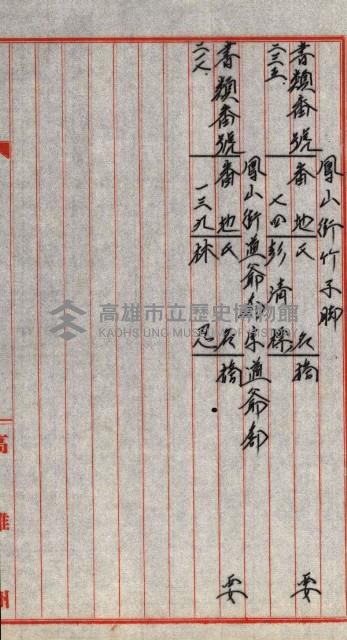 鳳山街竹子脚
書類番號 番地 氏名 摘要
二三五、 七四 彭清
鳳山街道爺
道爺部
書類番號 番地 氏名 摘要
二八、 一三九 林
高雄州
高雄市立歷史博物館
KAOHSIUNG MUSEUM OF HISTORY